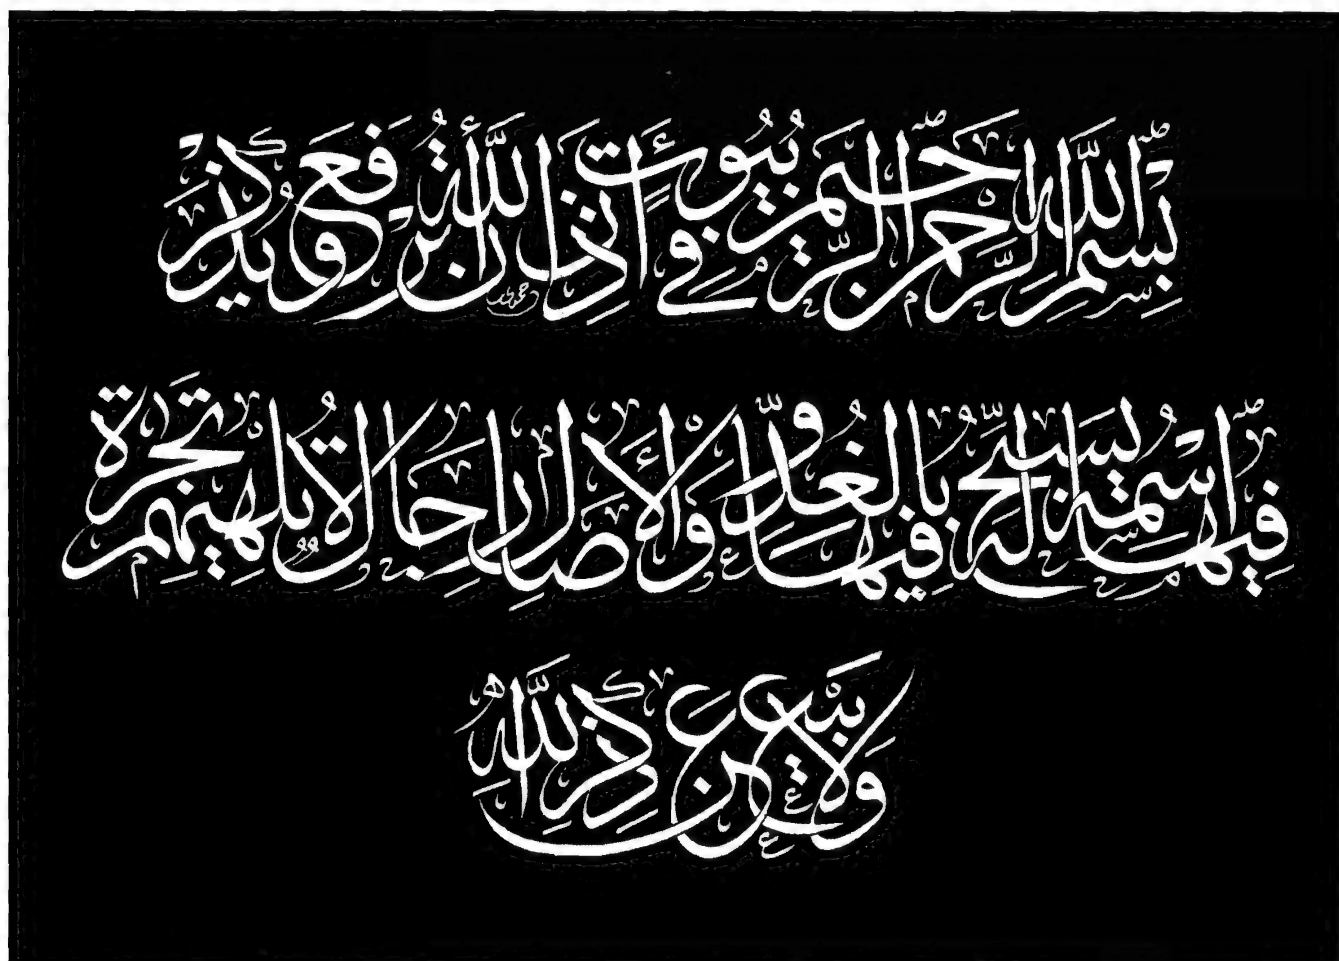 بِسْمِ اللَّهِ الرَّحْمَٰنِ الرَّحِيمِ فِي بُيُوتٍ أَذِنَ اللَّهُ أَنْ تُرْفَعَ وَيُذْكَرَ
فِيهَا اسْمُهُ يُسَبِّحُ لَهُ فِيهَا بِالْغُدُوِّ وَالْآصَالِ رِجَالٌ لَا تُلْهِيهِمْ تِجَٰرَةٌ
وَلَا بَيْعٌ عَنْ ذِكْرِ اللَّهِ